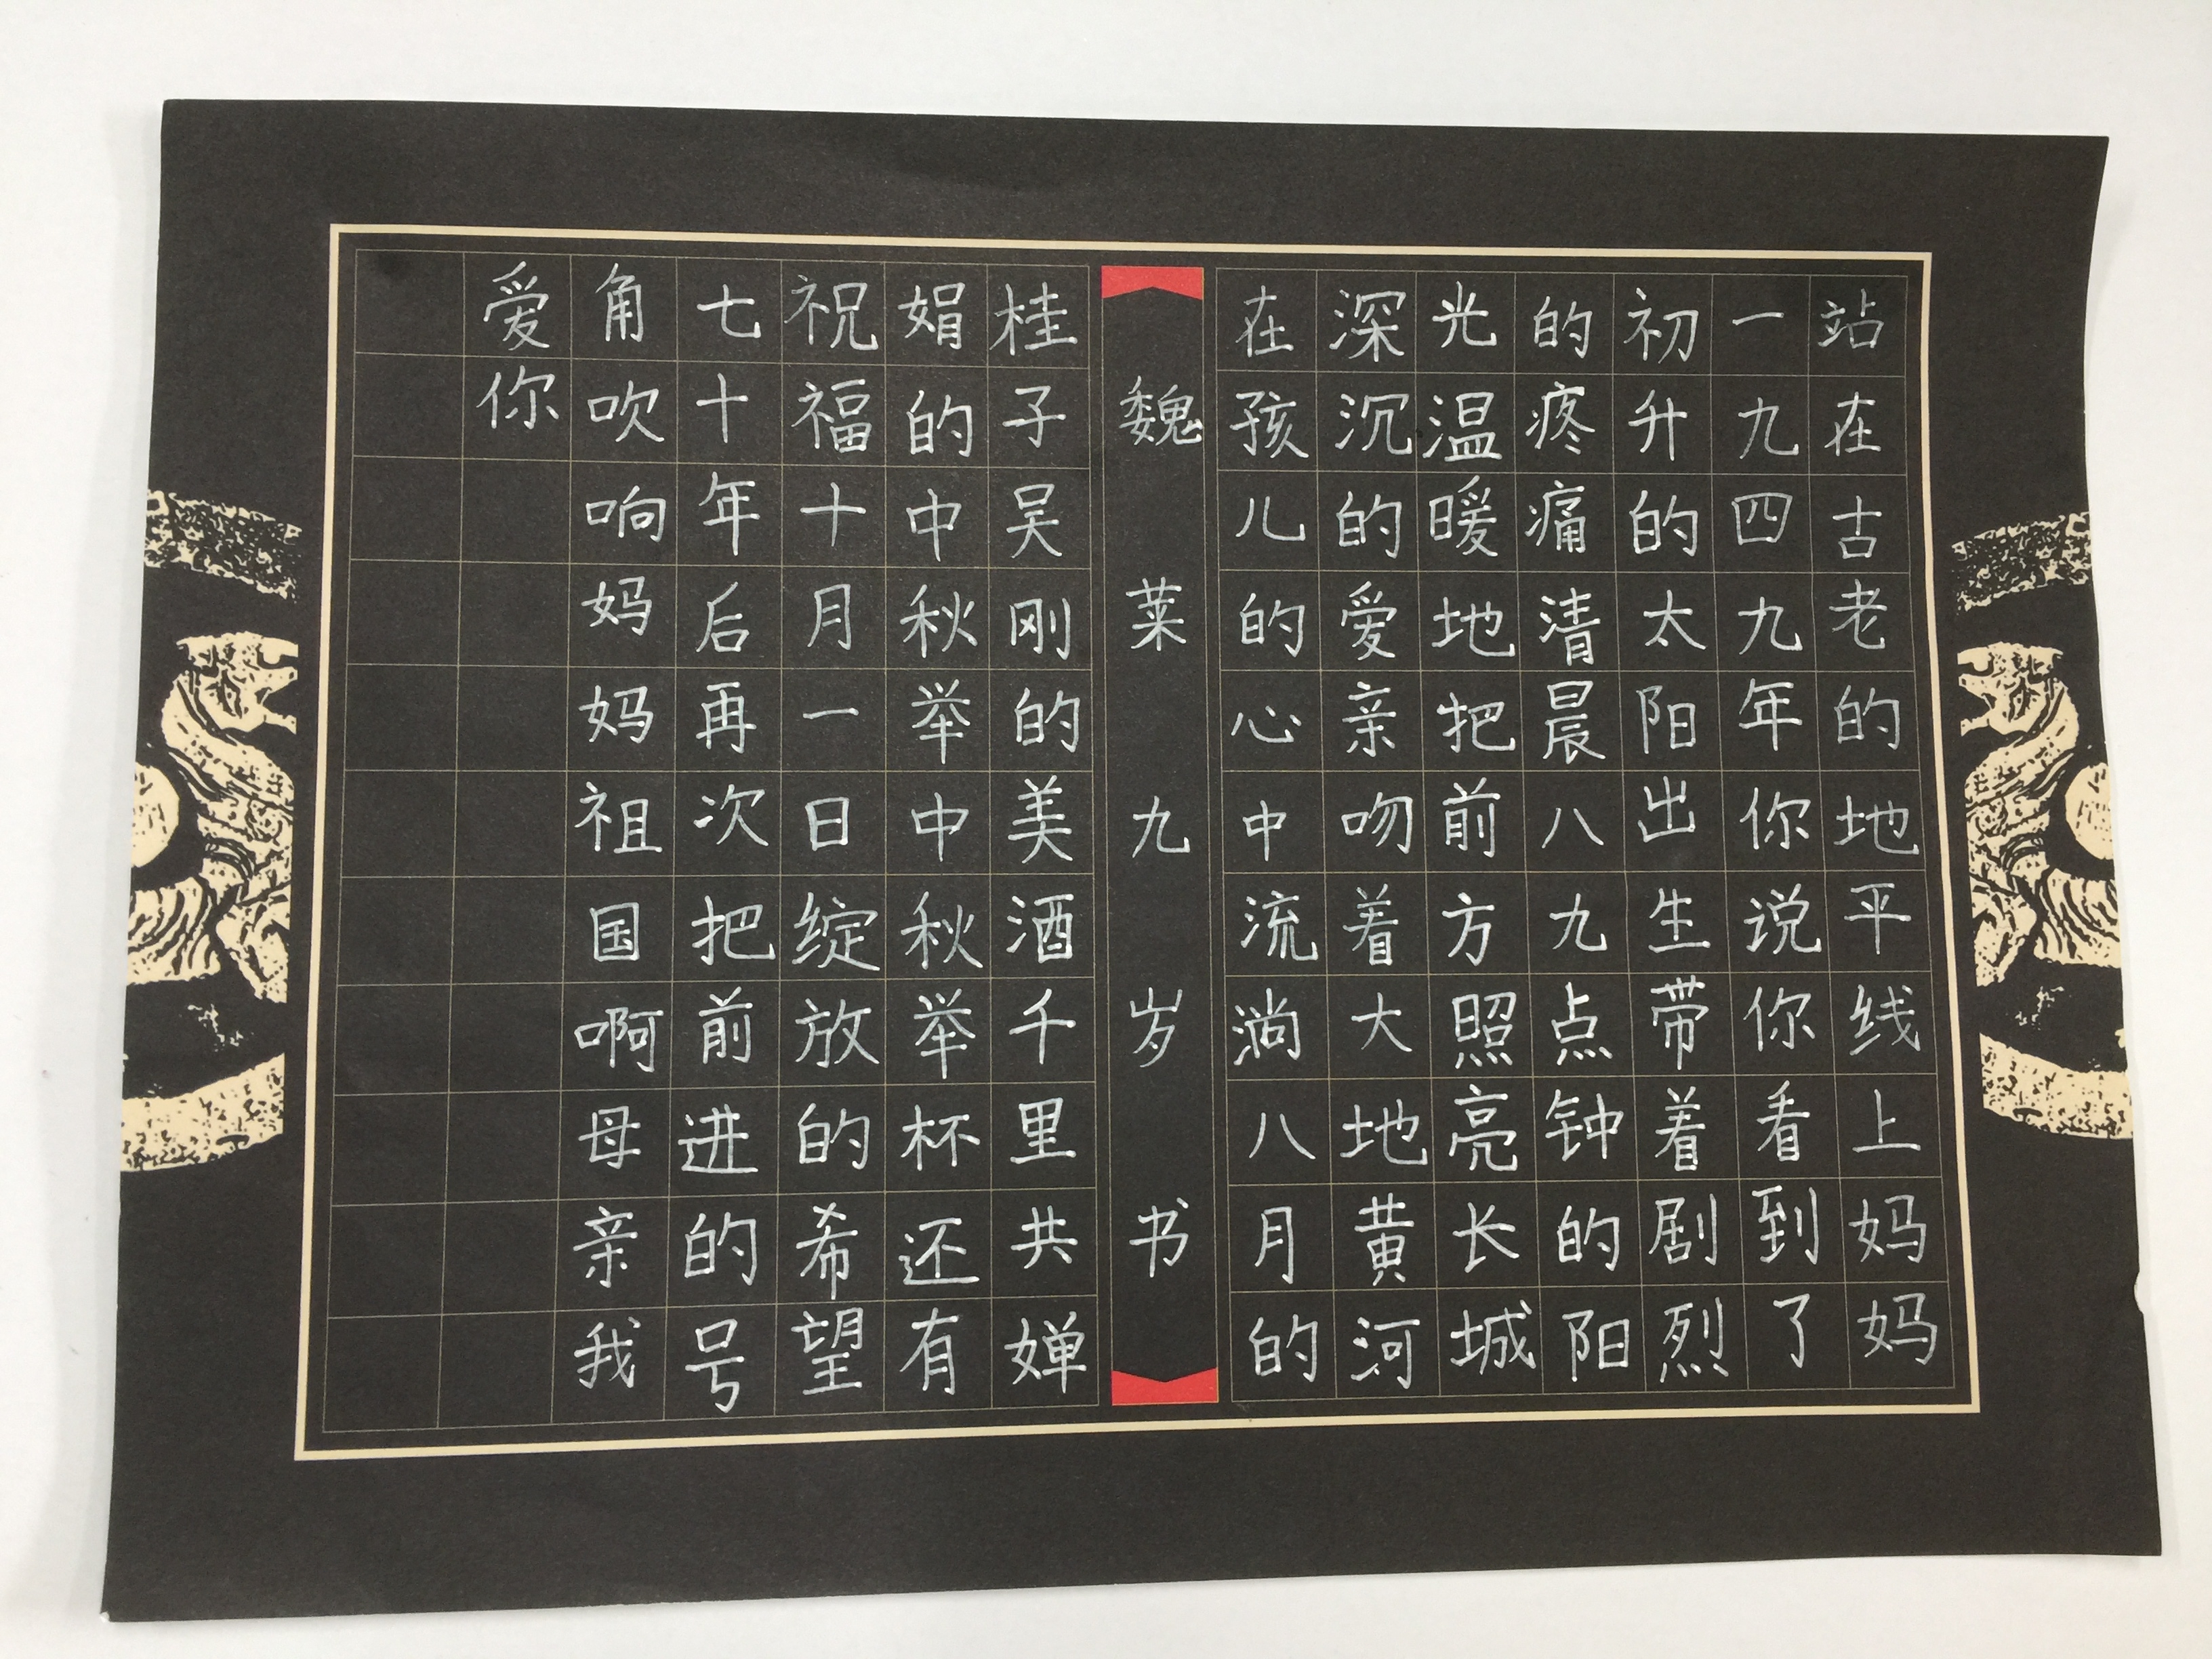 站在古老的地平线上妈妈
一九四九年你说你看到了
初升的太阳出生带着剧烈
的疼痛清晨八九点钟的阳
光温暖地把前方照亮长城
深沉的爱亲吻着大地黄河
在孩儿的心中流淌八月的
魏菜九岁书
桂子吴刚的美酒千里共婵
娟的中秋举中秋举杯还有
祝福十月一日绽放的希望
七十年后再次把前进的号
角吹响妈妈祖国啊母亲我
爱你